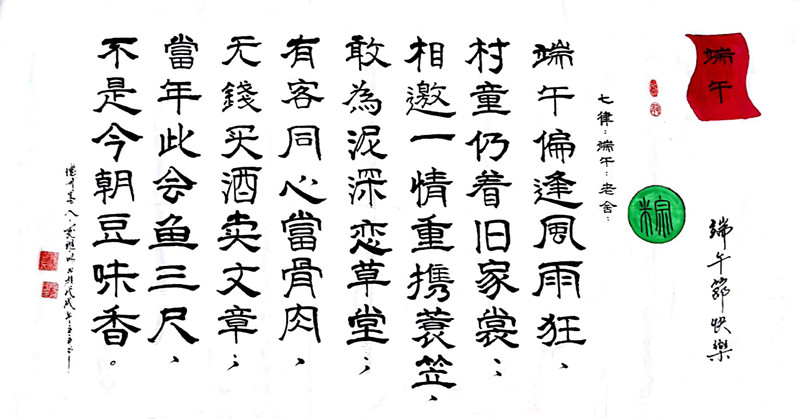 端午
粽
端午節快樂
七律：端午：老舍：
端午偏逢風雨狂、
村童仍着旧家裳；
相邀一情重携蓑笠、
敢為泥深恋草堂；
有客同心當骨肉、
无錢买酒卖文章；
當年此会鱼三尺、
不是今朝豆味香。